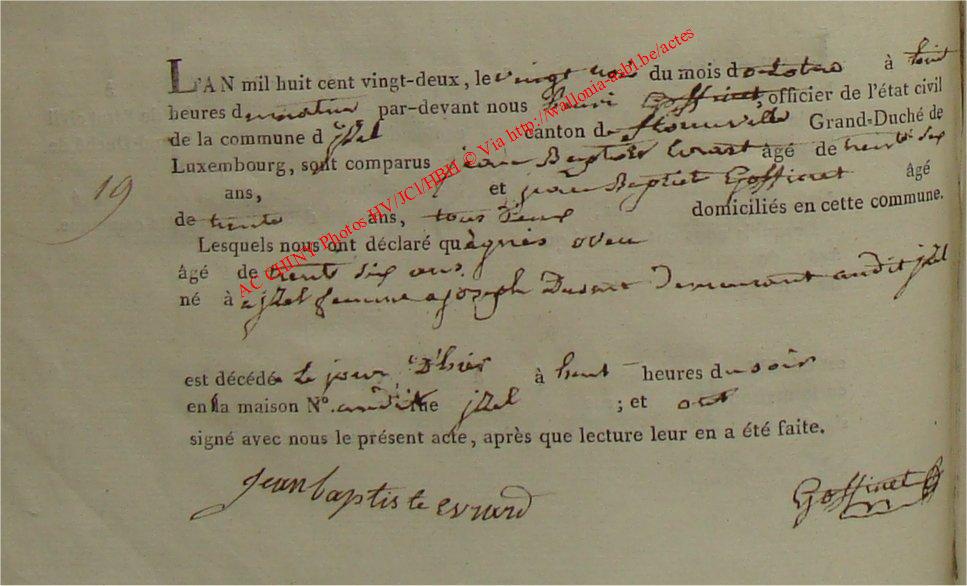 L'AN mil huit cent vingt-deux, le vingt du mois d octobre à huit
heures d u matin par-devant nous henri Goffinet, officier de l'état civil
de la commune d jzel canton de florenville Grand-Duché de
Luxembourg, sont comparus jean Baptiste Evrard âgé de trente six
ans, et jean Baptist Goffinet âgé
de trente ans, tous deux domiciliés en cette commune.
19
Lesquels nous ont déclaré qu agnès
âgé de trente six ans
né à jzel femme a joseph Demeurant audit jzel
est décédé le jour D'hier à huit heures du soir
en la maison N°. audit rue jzel ; et ont
signé avec nous le présent acte, après que lecture leur en a été faite.
jean baptiste evrard Goffinet
AC CHINY Photos HV/JCl/HBH © Via http://wallonia-asbl.be/actes